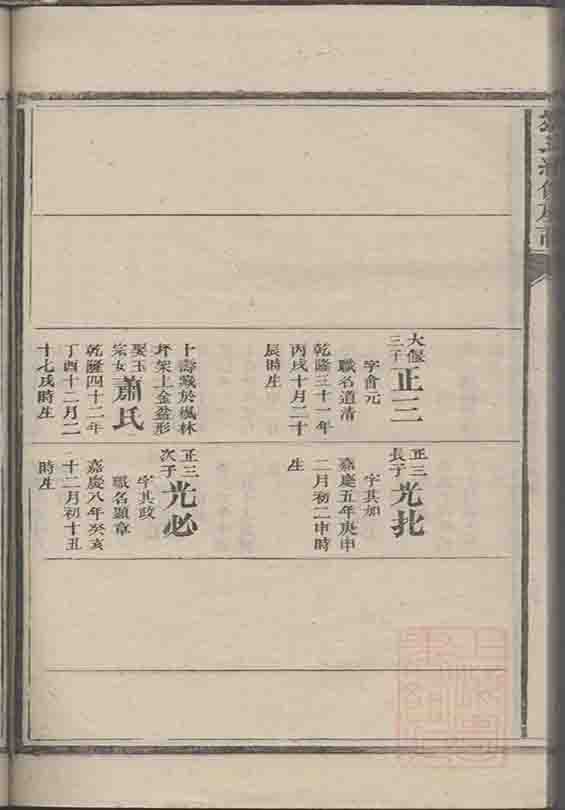 大偃
三子
正三
字會元
職名道清
乾隆三十一年
丙戌十月二十
辰時生
十壽藏於楓林
坪架上金盆形
娶玉
宗女
蕭氏
乾隆四十二年
丁酉十二月二
十七戌時生
正三
長子
光
字其如
嘉慶五年庚申
二月初二申時
生
正三
次子
光必
字其政
職名顯章
嘉慶八年癸亥
十二月初十丑
時生